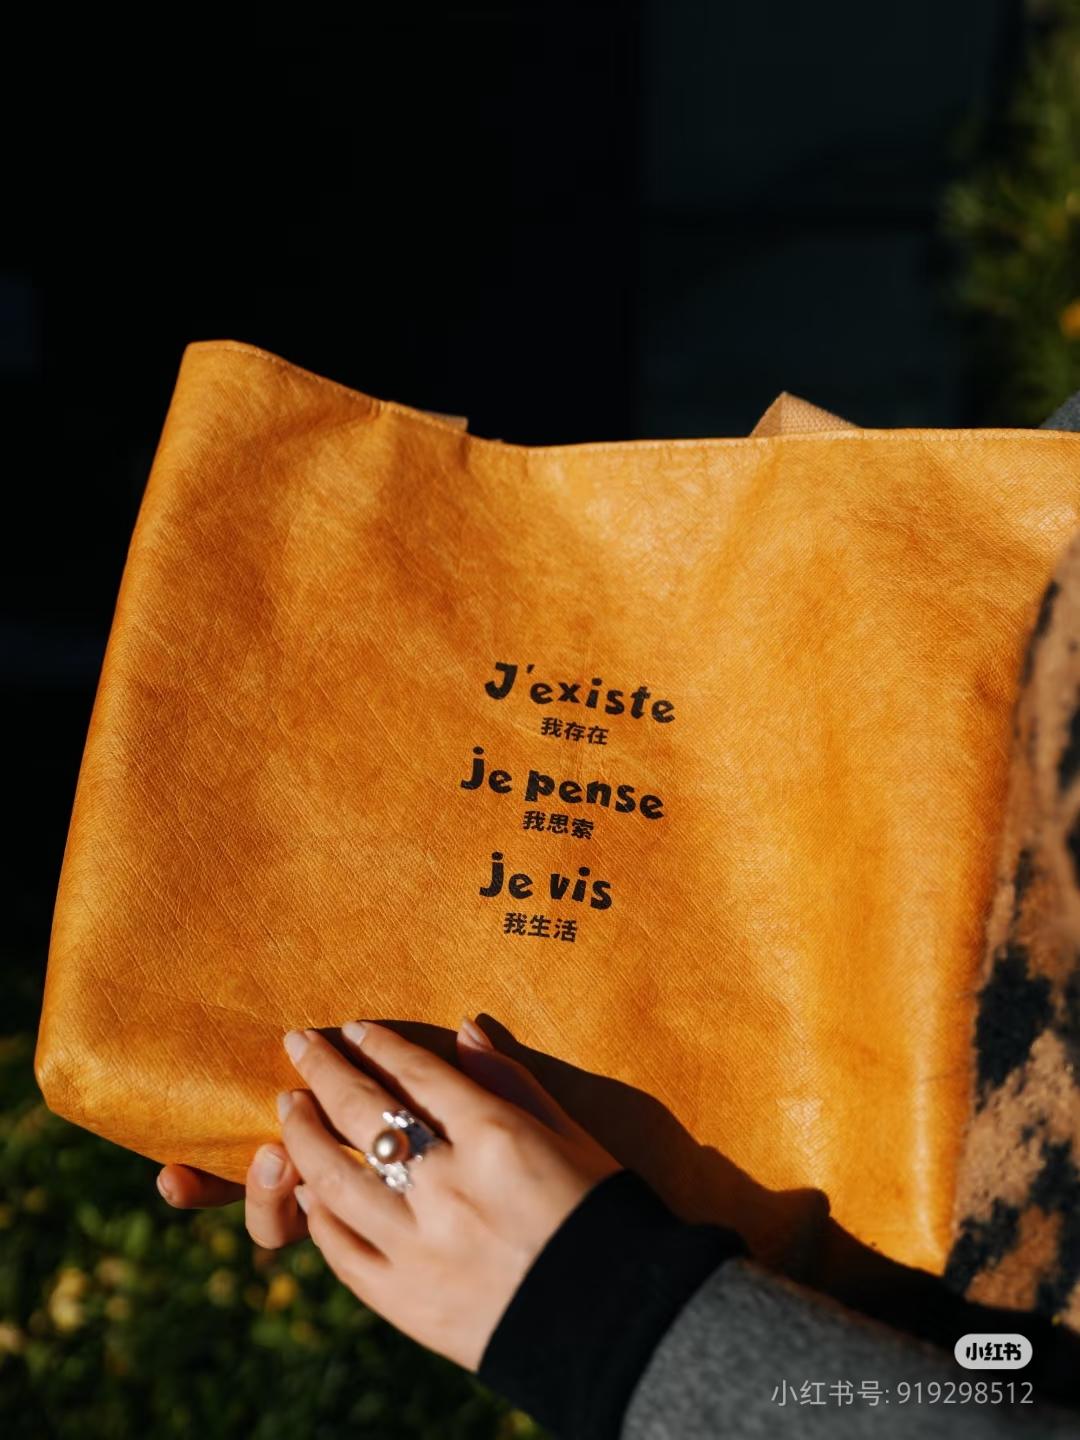 J'existe
我存在
je pense
我思索
je vis
我生活
小红书
小红书号: 919298512